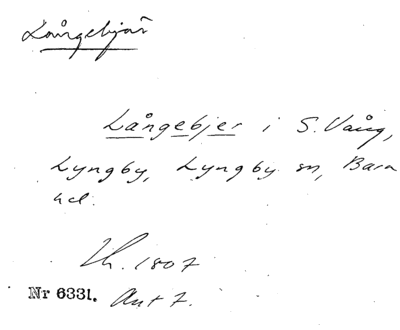 Långebjär
Långebjer i S. Vång,
Lyngby, Lyngby sn, Bara
hd.
Lh. 1807
Nr 6331. Akt 7.